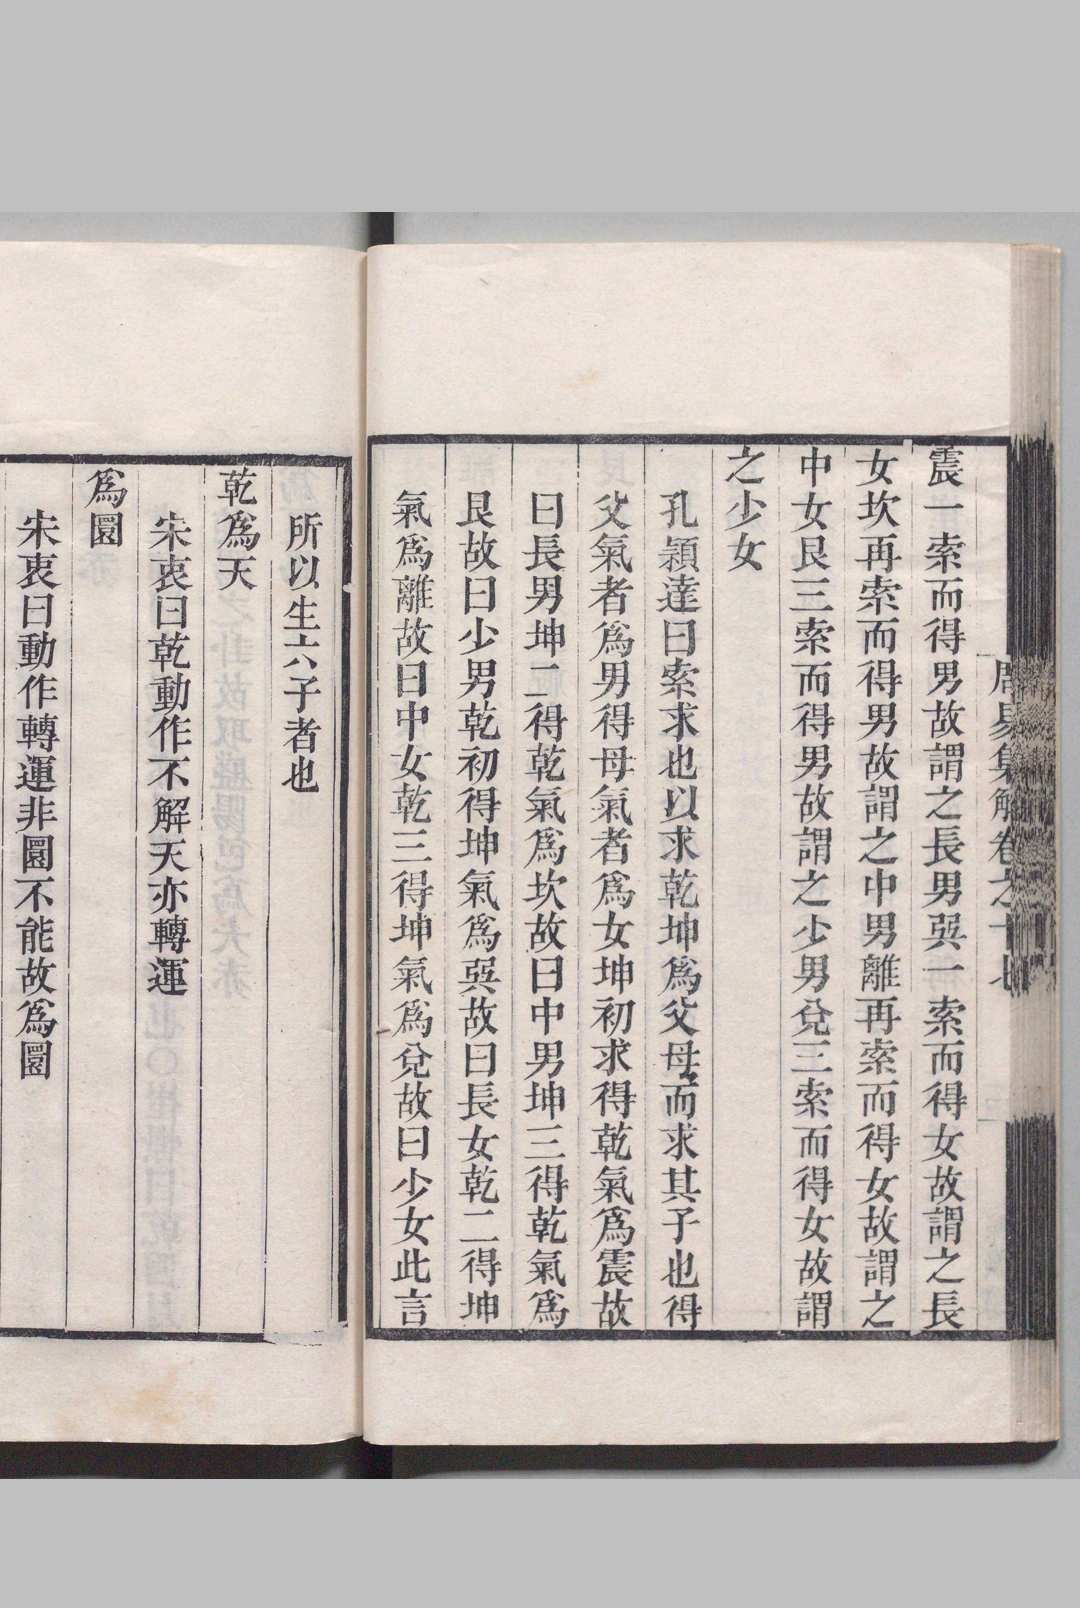 周易集解卷之十七
震一索而得男故謂之長男巽一索而得女故謂之長
女坎再索而得男故謂之中男離再索而得女故謂之
中女艮三索而得男故謂之少男兌三索而得女故謂
之少女
孔穎達曰索求也以求乾坤爲父母而求其子也得
父氣者爲男得母氣者爲女坤初求得乾氣爲震故
曰長男坤二得乾氣爲坎故曰中男坤三得乾氣爲
艮故曰少男乾初得坤氣爲巽故曰長女乾二得坤
氣爲離故曰中女乾三得坤氣爲兌故曰少女此言
所以生六子者也
乾爲天
宋衷曰乾動作不解天亦轉運
爲圜
宋衷曰動作轉運非圜不能故爲圜